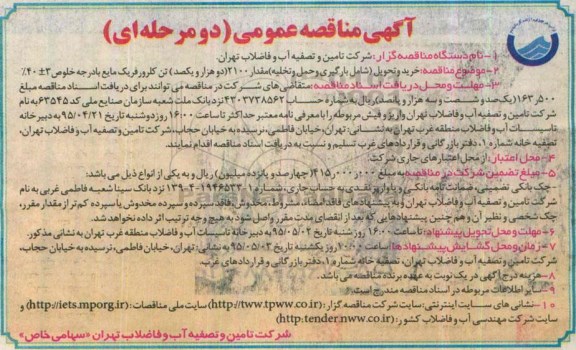 آگهی مناقصه عمومی (دو مرحله‌ای)
۱- نام دستگاه مناقصه گزار: شرکت تامین و تصفیه آب و فاضلاب تهران.
۲- موضوع مناقصه: خرید و تحویل (شامل بارگیری و حمل و تخلیه) مقدار ۲۱۰۰ (دو هزار و یکصد) تن کلرورفریک مایع با درجه خلوص ۳±۴۰٪
۳- مهلت و محل دریافت اسناد مناقصه: متقاضی‌های شرکت در مناقصه می توانند برای دریافت اسناد مناقصه مبلغ
۱۶۳,۵۰۰ (یکصد و شصت و سه هزار و پانصد) ریال به شماره حساب ۴۳۰۳۷۳۸۵۶۲ نزد بانک ملت شعبه سازمان صنایع ملی کد ۶۳۵۴۵ به نام
شرکت تامین و تصفیه آب و فاضلاب تهران واریز و فیش مربوطه را با معرفی نامه معتبر حداکثر تا ساعت ۱۶:۰۰ روز دوشنبه تاریخ ۹۵/۰۴/۲۱ به دبیرخانه
تاسیسات آب و فاضلاب منطقه غرب تهران به نشانی: تهران، خیابان فاطمی، نرسیده به خیابان حجاب، شرکت تامین و تصفیه آب و فاضلاب تهران،
تصفیه خانه شماره ۱، دفتر بازرگانی و قراردادهای غرب تسلیم و نسبت به دریافت اسناد مناقصه اقدام نمایند.
۴- محل اعتبار: از محل اعتبارهای جاری شرکت.
۵- مبلغ تضمین شرکت در مناقصه: به مبلغ ۴۱۵,۰۰۰,۰۰۰ (چهارصد و پانزده میلیون) ریال و به یکی از انواع ذیل می باشد:
- چک بانکی تضمینی، ضمانت نامه بانکی و یا واریز نقدی به حساب جاری، شماره ۱-۱۹۴۶۵۳۳-۴-۱۳۹ نزد بانک سینا شعبه فاطمی غربی به نام
شرکت تامین و تصفیه آب و فاضلاب تهران و به پیشنهادهای فاقد امضاء، مشروط، مخدوش، فاقد سپرده و سپرده مخدوش یا سپرده کم تر از مقدار مقرر،
چک شخصی و نظیر آن و هم چنین پیشنهادهایی که بعد از انقضای مدت مقرر واصل شود به هیچ وجه ترتیب اثر داده نخواهد شد.
۶- مهلت و محل تحویل پیشنهاد: تا ساعت ۱۶:۰۰ روز شنبه تاریخ ۹۵/۰۵/۰۲ به دبیرخانه تاسیسات آب و فاضلاب منطقه غرب تهران به نشانی مذکور.
۷- زمان و محل گشایش پیشنهادها: ساعت ۱۰:۰۰ روز یکشنبه تاریخ ۹۵/۰۵/۰۳ به نشانی: تهران، خیابان فاطمی، نرسیده به خیابان حجاب،
شرکت تامین و تصفیه آب و فاضلاب تهران، تصفیه خانه شماره ۱، دفتر بازرگانی و قراردادهای غرب.
۸- هزینه درج آگهی در یک نوبت به عهده برنده مناقصه می باشد.
۹- سایر اطلاعات مربوطه در اسناد مناقصه مندرج است.
۱۰- نشانی های سایت اینترنتی: سایت شرکت مناقصه گزار: (http://tww.tpww.co.ir) سایت ملی مناقصات: (http://iets.mporg.ir) و
سایت شرکت مهندسی آب و فاضلاب کشور: (http:tender.nww.co.ir)
شرکت تامین و تصفیه آب و فاضلاب تهران «سهامی خاص»